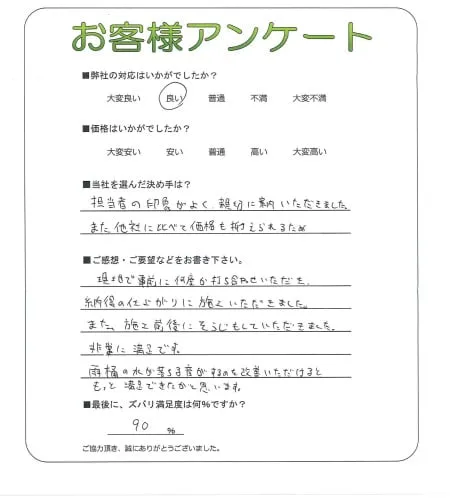 お客様アンケート
■弊社の対応はいかがでしたか?
大変良い 良い 普通 不満 大変不満
■価格はいかがでしたか?
大変安い 安い 普通 高い 大変高い
■当社を選んだ決め手は?
担当者の印象がよく、親切に案内いただきました。
また他社に比べて価格も抑えられるため
■ご感想・ご要望などをお書き下さい。
現地で事前に何度か打ち合わせいただき、
納得の仕上がりに施工いただきました。
また、施工前後にそうじもしていただきました。
非常に満足です。
雨樋の水が落ちる音がするのを改善いただけると
もっと満足できたかと思います。
■最後に、ズバリ満足度は何%ですか?
90 %
ご協力頂き、誠にありがとうございました。